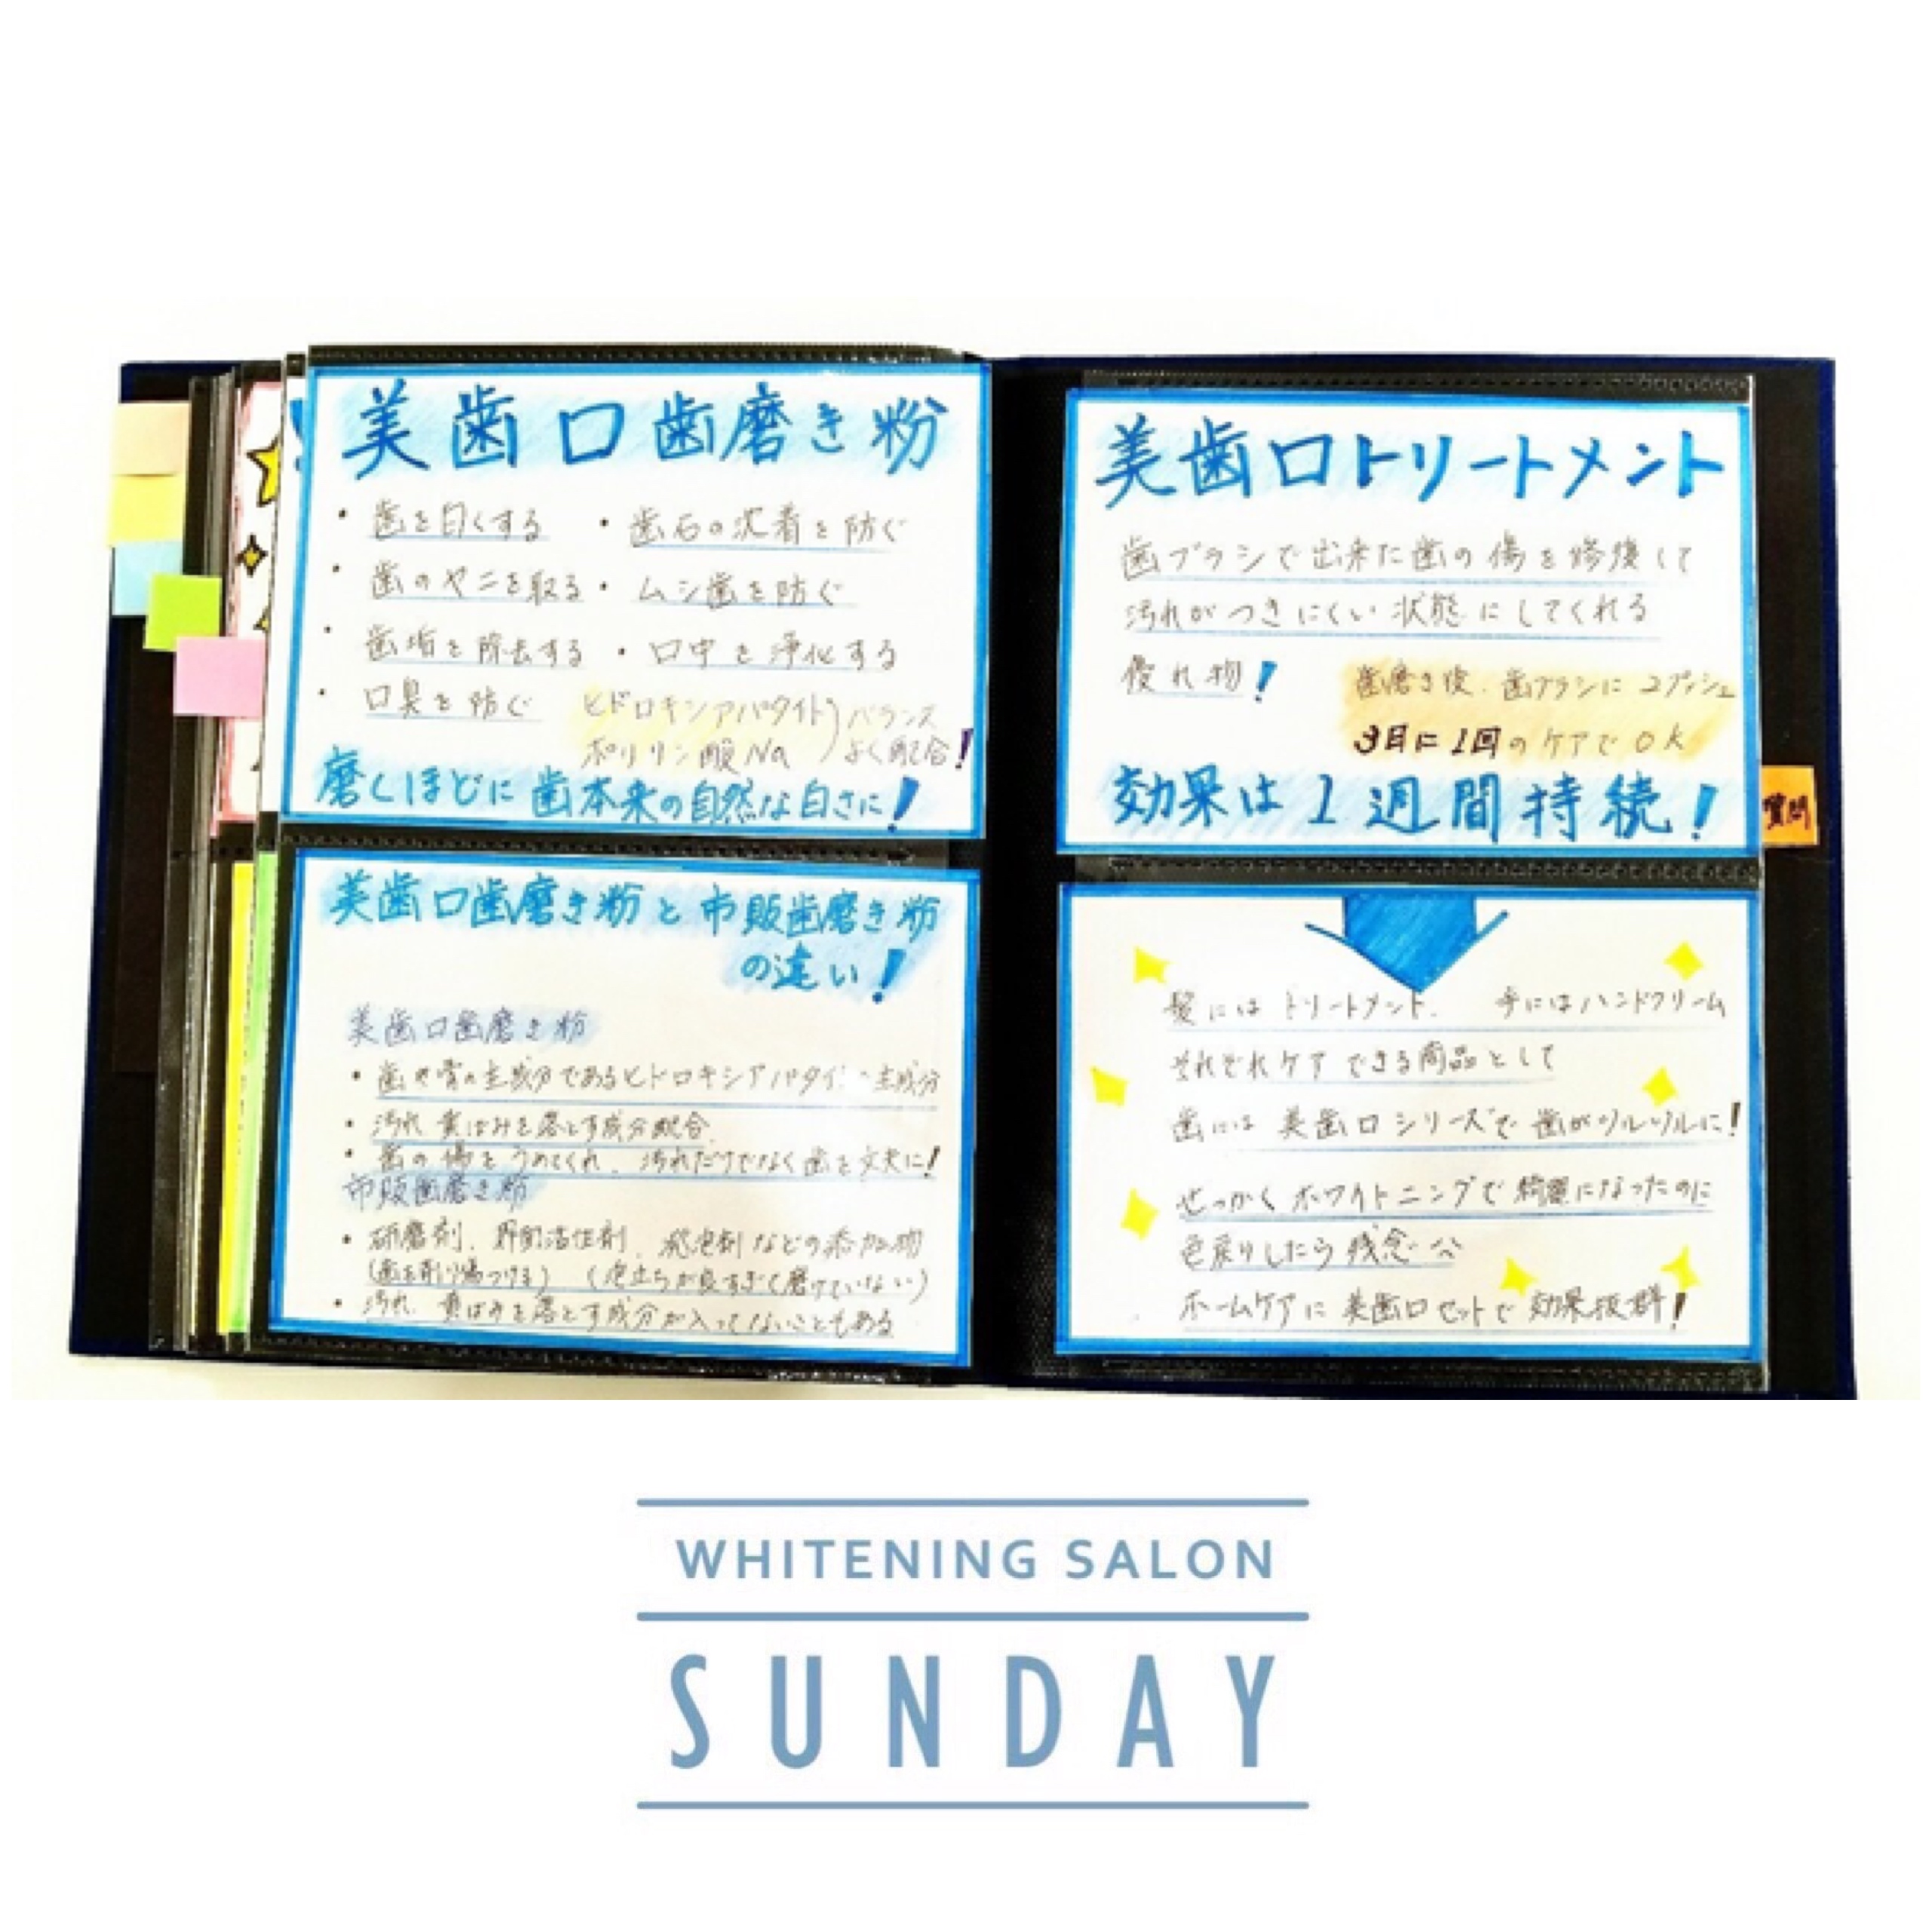 美歯口歯磨き粉
・歯を白くする ・歯石の沈着を防ぐ
・歯のヤニを取る ・ムシ歯を防ぐ
・歯垢を除去する ・口中を浄化する
・口臭を防ぐ
ヒドロキシアパタイト)バランス
ポリリン酸Na)よく配合!
磨くほどに歯本来の自然な白さに!
美歯口歯磨き粉と市販歯磨き粉
の違い!
美歯口歯磨き粉
・歯や骨の主成分であるヒドロキシアパタイ 主成分
・汚れ 黄ばみを落とす成分配合
・歯の傷をうめてくれ、汚れだけでなく歯を丈夫に!
市販歯磨き粉
・研磨剤、界面活性剤、発泡剤などの添加物
(歯を削り傷つける) (泡立ちが良すぎて磨けていない)
・汚れ、黄ばみを落とす成分が入ってないこともある
美歯口トリートメント
歯ブラシで出来た歯の傷を修復して
汚れがつきにくい状態にしてくれる
優れ物!
歯磨き後、歯ブラシに2プッシュ
3日に1回のケアでOK
効果は1週間持続!
質問
髪にはトリートメント、 手にはハンドクリーム
それぞれケアできる商品として
歯には美歯口シリーズで歯がツルツルに!
せっかくホワイトニングで綺麗になったのに
色戻りしたら残念…
ホームケアに美歯口セットで効果抜群!
WHITENING SALON
SUNDAY